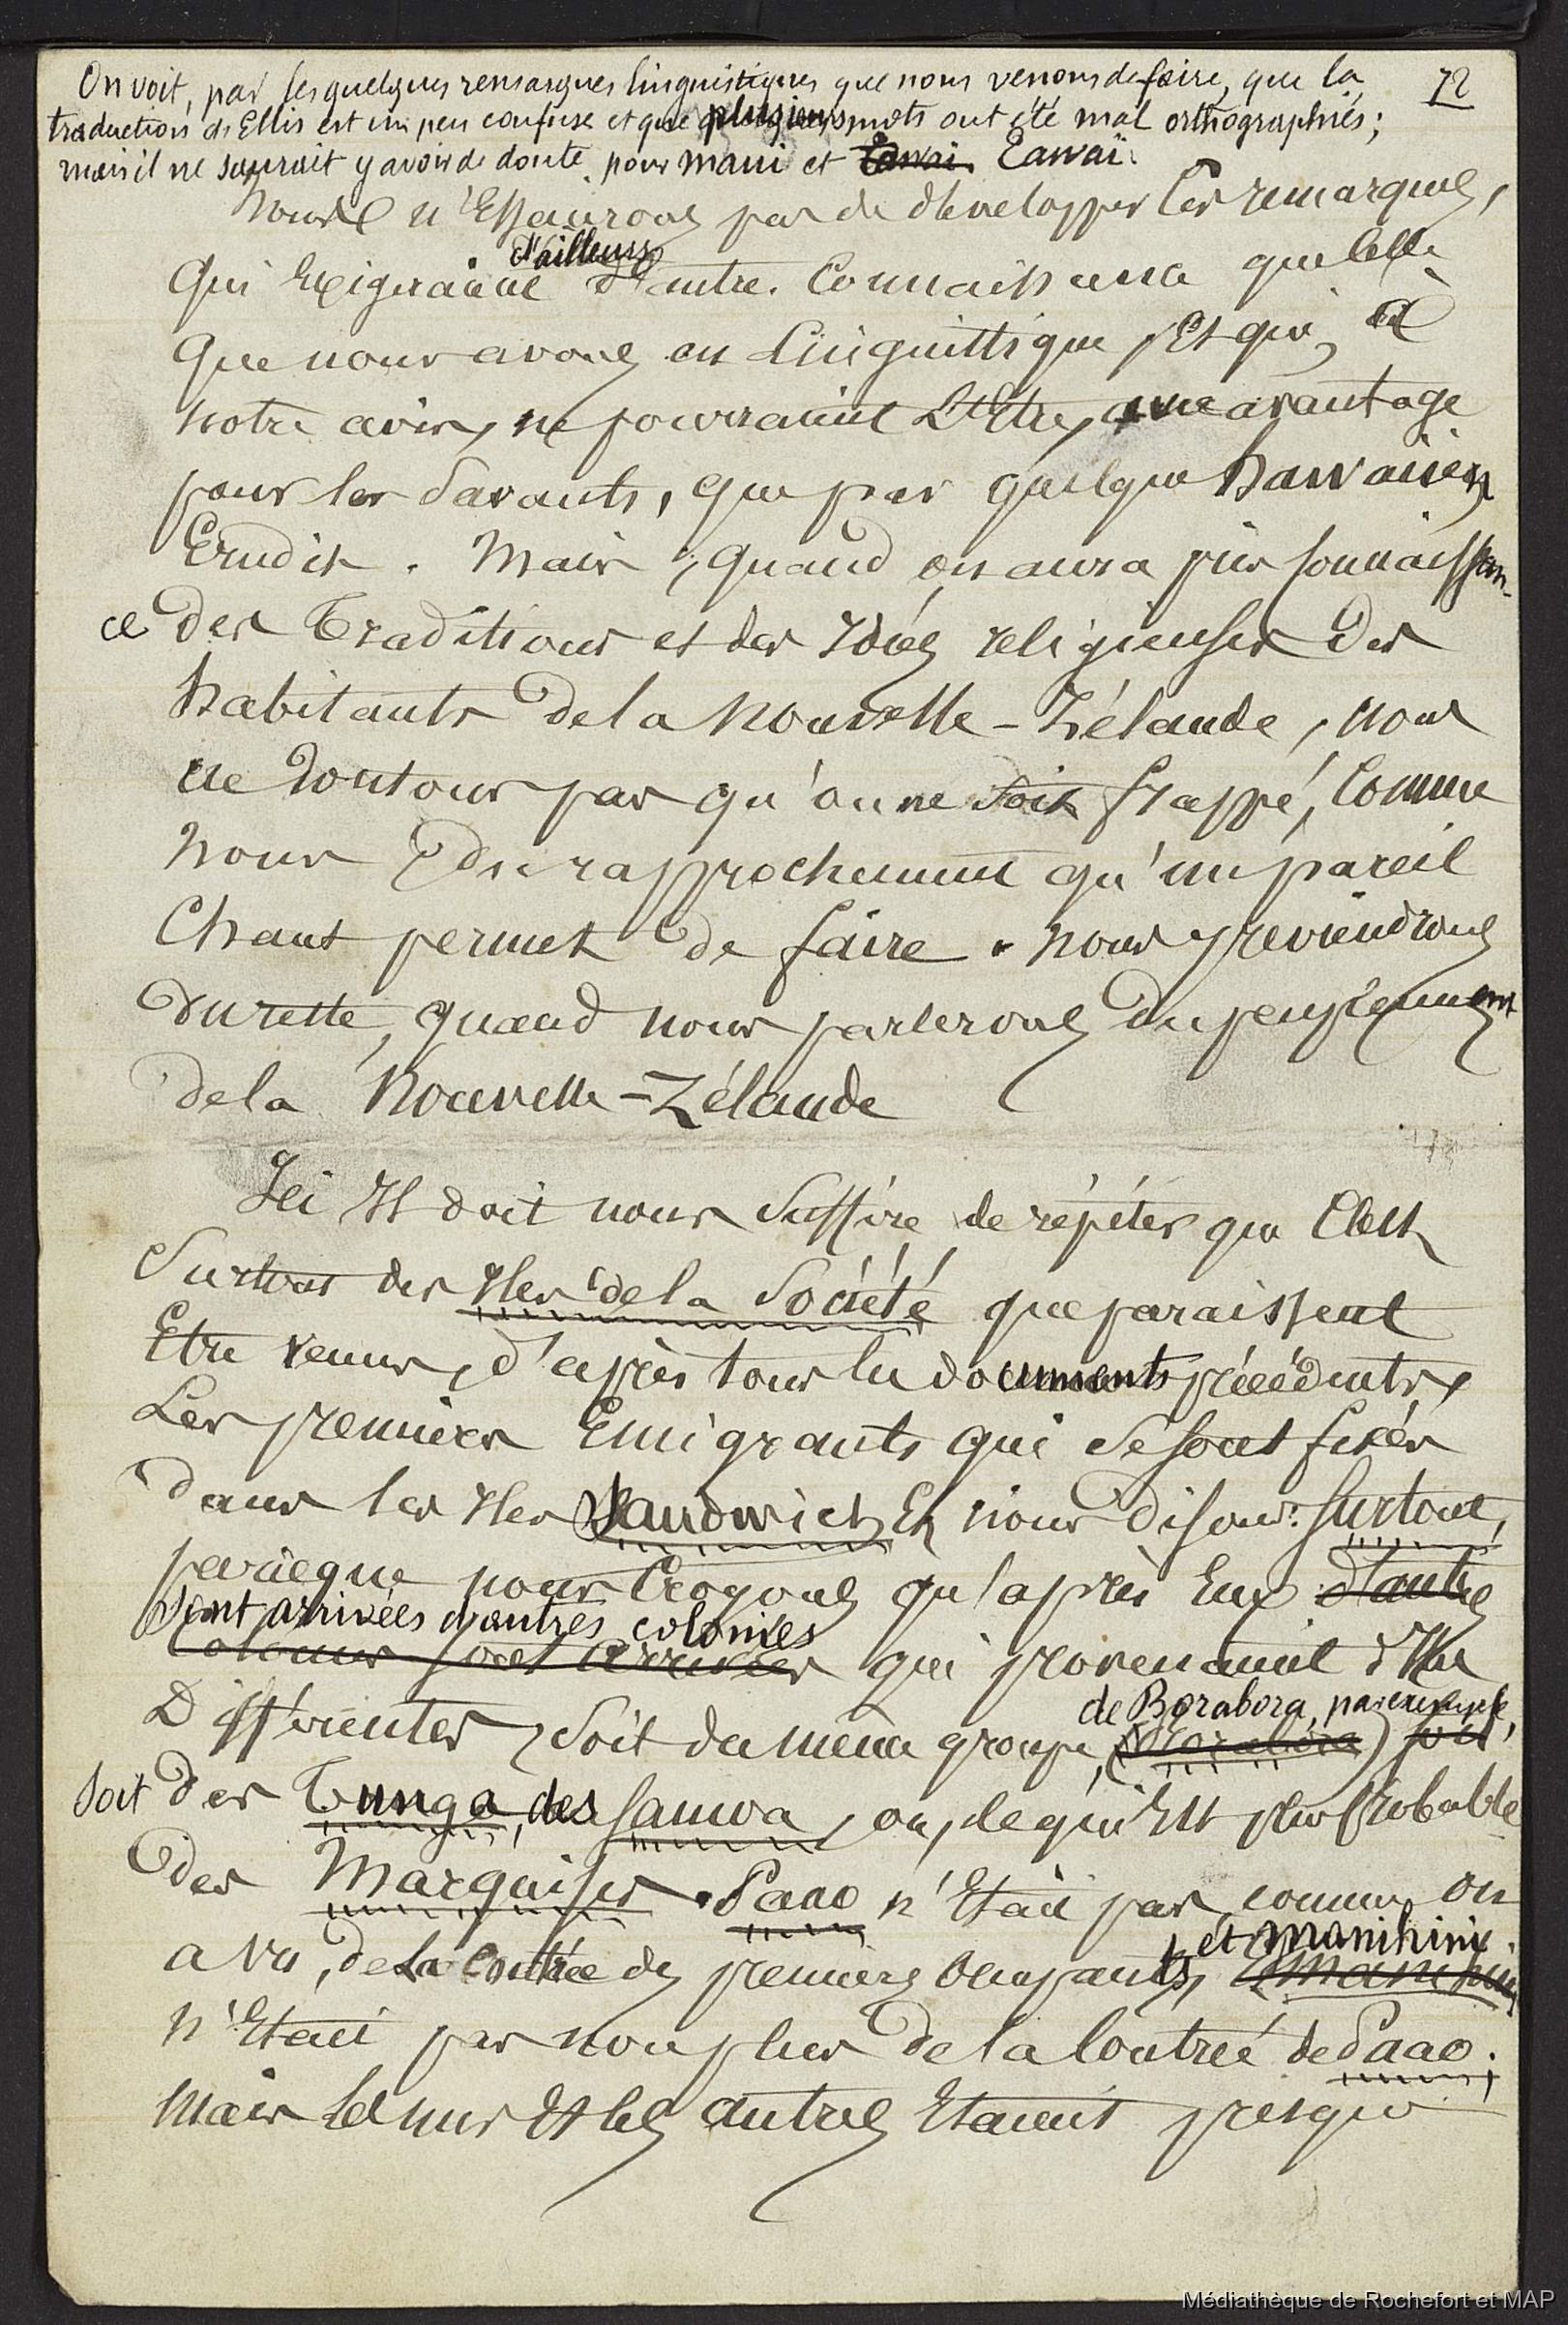 72
On voit, par les quelques remarques linguistiques que nous venons de faire, que la
traduction de Ellis est un peu confuse et que plusieurs mots ont été mal orthographiés;
mais il ne saurait y avoir de doute pour maui et Tawai Eawaï.
nous n'Essairons pas de développer ces remarques,
d'ailleurs
qui Exigeraient d'autre connaissance que celle
que nous avons en Linguittique, Et qui, à
notre avis, ne pourraient L'Etre, avec avantage
pour les Savants, que par quelque hawaiien
Erudit. Mais, quand on aura pris connaissan-
ce des Traditions et des Idées religieuses des
habitants de la nouvelle-Zélande, nous
ne doutons pas qu'on ne soit frappé, comme
nous du rapprochement qu'un pareil
Chant permet de faire. nous y reviendrons
du reste, quand nous parlerons du peuplement
de la Nouvelle-Zélande
Ici Il doit nous suffire de répéter que C'est
surtout des Iles de la Société que paraissent
Etre venus, d'après tous les documents précédents,
Les premiers Emigrants qui se sont fixés
dans les Iles Sandwich Et nous disons: surtout,
parceque nous Croyons qu'après Eux d'autres
sont arrivées d'autres colonies
colonies sont arrivées qui provenaient d'Iles
de Borabora, par exemple,
Différentes, soit du même groupe, (Borabora) soit
soit des Tunga, des Samoa, ou, ce qui Est plus probable
des Marquises. Paao n'Etait pas, comme on
et manihini
a vu, de la Contrée des premiers Occupants, Et manihini
n'Etait pas non plus de la Contrée de Paao;
mais les uns Et les autres Etaient presque
Médiathèque de Rochefort et MAP